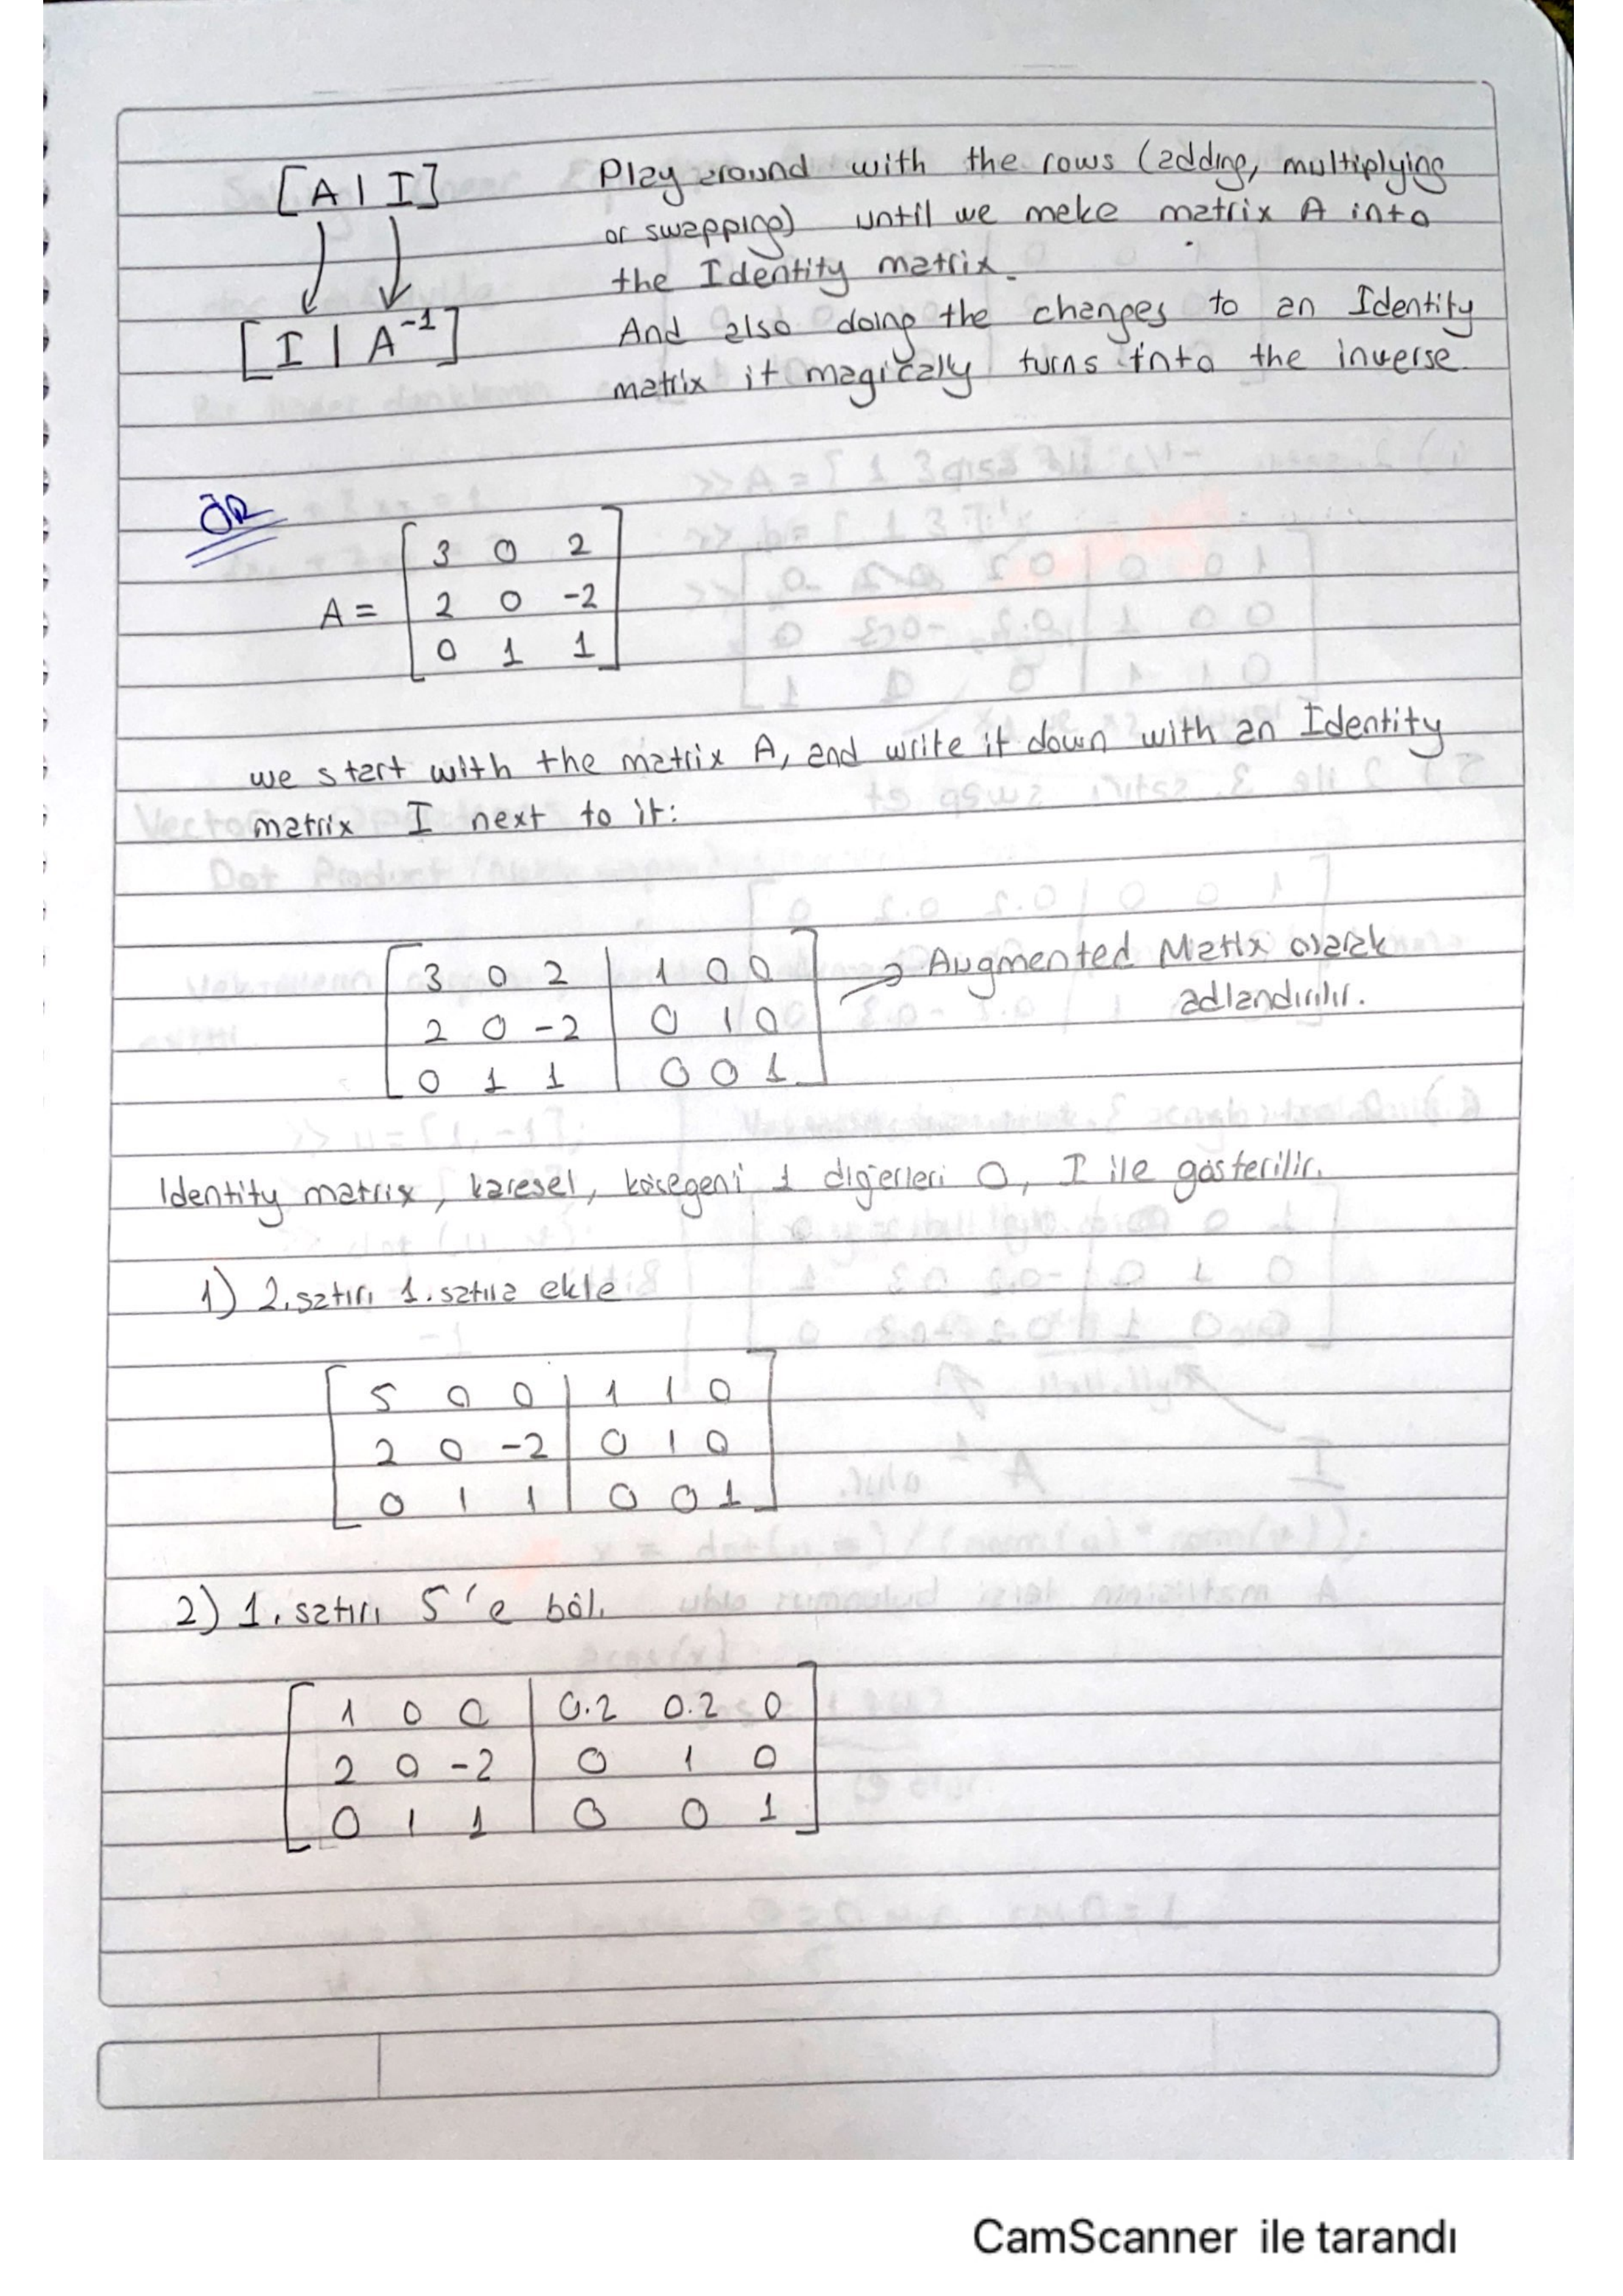 [A | I] Play around with the rows (adding, multiplying
or swapping) until we make matrix A into
the Identity matrix.
[I | A⁻¹] And also doing the changes to an Identity
matrix it magically turns into the inverse.
ÖR
3 0 2
A = 2 0 -2
0 1 1
we start with the matrix A, and write it down with an Identity
matrix I next to it:
3 0 2 | 1 0 0 → Augmented Matrix olarak
adlandırılır.
2 0 -2 | 0 1 0
0 1 1 | 0 0 1
Identity matrix, karesel, köşegeni 1 diğerleri 0, I ile gösterilir.
1) 2.satırı 1.satıra ekle
5 0 0 | 1 1 0
2 0 -2 | 0 1 0
0 1 1 | 0 0 1
2) 1.satırı 5'e böl.
1 0 0 | 0.2 0.2 0
2 0 -2 | 0 1 0
0 1 1 | 0 0 1
CamScanner ile tarandı